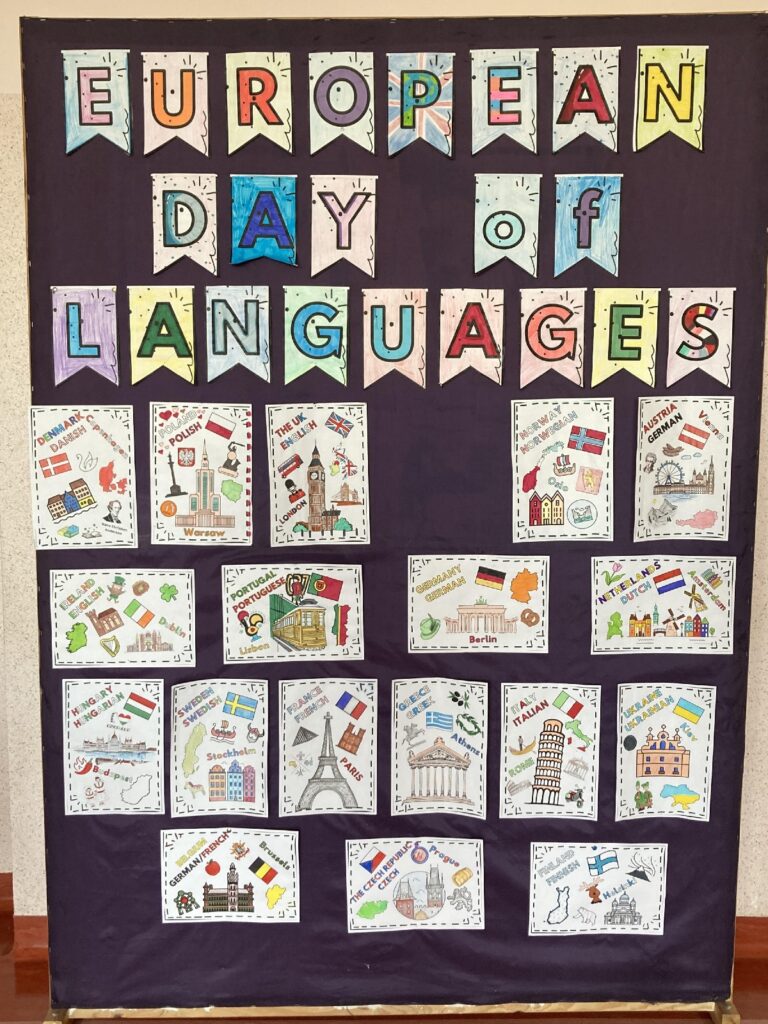 EUROPEAN
DAY of
LANGUAGES
DENMARK
DANISH
Copenhagen
POLAND
POLISH
Warsaw
THE UK
ENGLISH
LONDON
NORWAY
NORWEGIAN
Oslo
AUSTRIA
GERMAN
Vienna
IRELAND
ENGLISH
Dublin
PORTUGAL
PORTUGUESE
Lisbon
GERMANY
GERMAN
Berlin
NETHERLANDS
DUTCH
Amsterdam
HUNGARY
HUNGARIAN
Budapest
SWEDEN
SWEDISH
Stockholm
FRANCE
FRENCH
PARIS
GREECE
GREEK
Athens
ITALY
ITALIAN
ROME
UKRAINE
UKRAINIAN
Kiev
BELGIUM
GERMAN/FRENCH
Brussels
THE CZECH REPUBLIC
CZECH
Prague
FINLAND
FINNISH
Helsinki